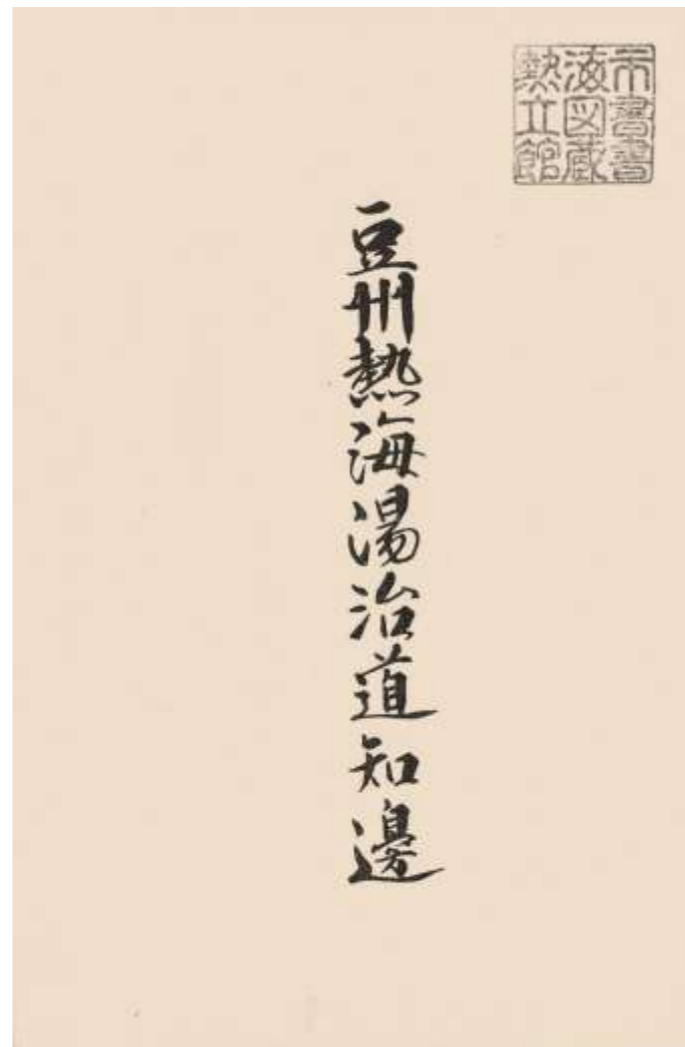 熱海市
立図書
館蔵書
豆州熱海湯治道知邊